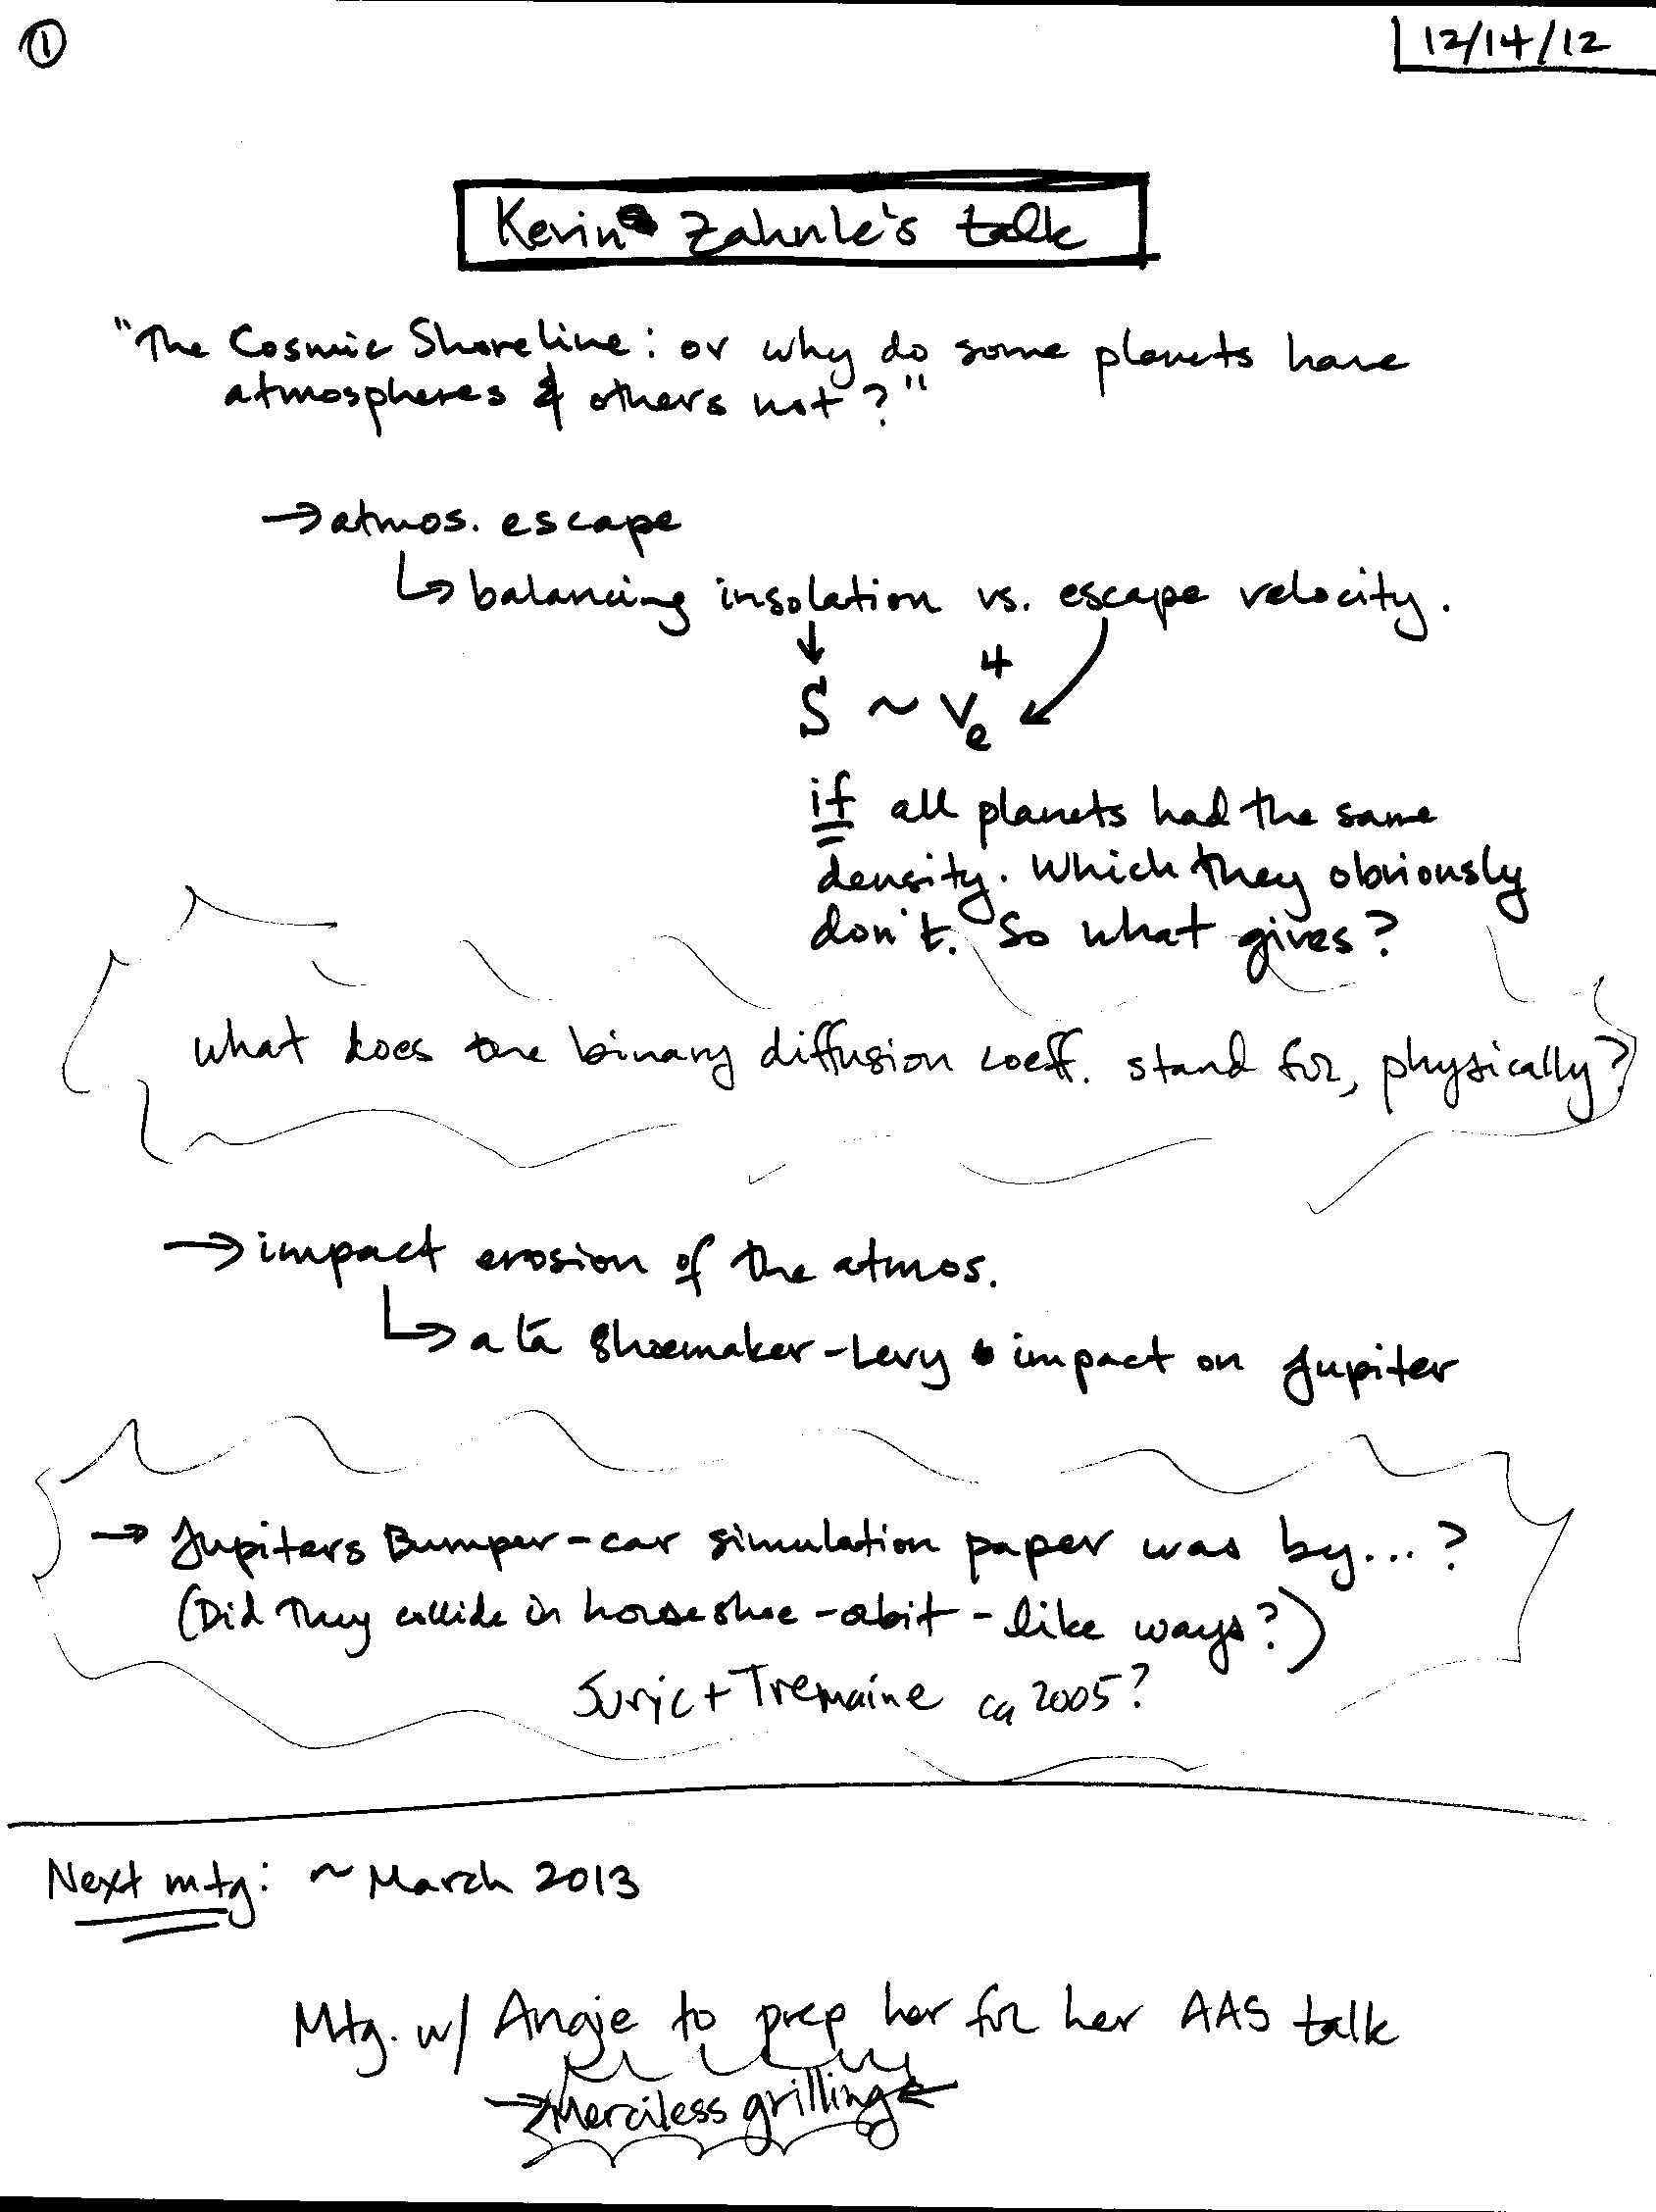 ①
12/14/12
Kevin Zahnle's talk
"The Cosmic Shoreline: or why do some planets have
atmospheres & others not?"
→ atmos. escape
↳ balancing insolation vs. escape velocity.
↓
S ~ Ve^4
if all planets had the same
density. Which they obviously
don't. So what gives?
what does the binary diffusion coeff. stand for, physically?
→ impact erosion of the atmos.
↳ a la Shoemaker-Levy impact on Jupiter
→ Jupiters Bumper-car simulation paper was by...?
(Did they collide in horseshoe-orbit-like ways?)
Juric + Tremaine ca 2005?
Next mtg: ~ March 2013
Mtg. w/ Angie to prep her for her AAS talk
→ Merciless grilling ←